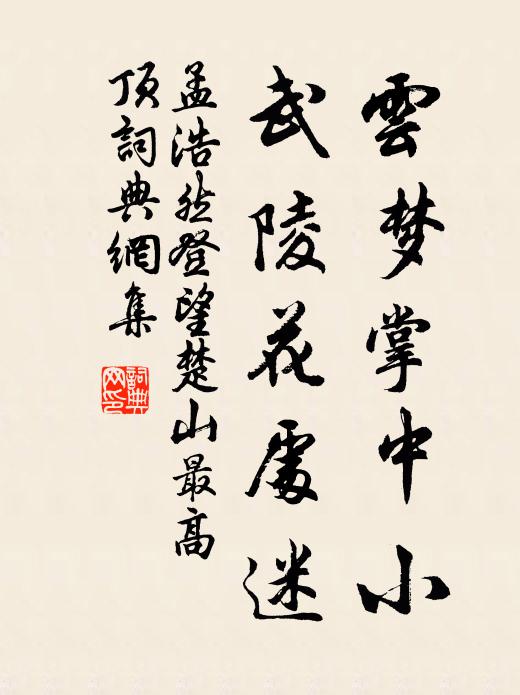 雲梦掌中小
武陵花處迷
孟浩然登望楚山最高
頂詞典網集
詞典
网印